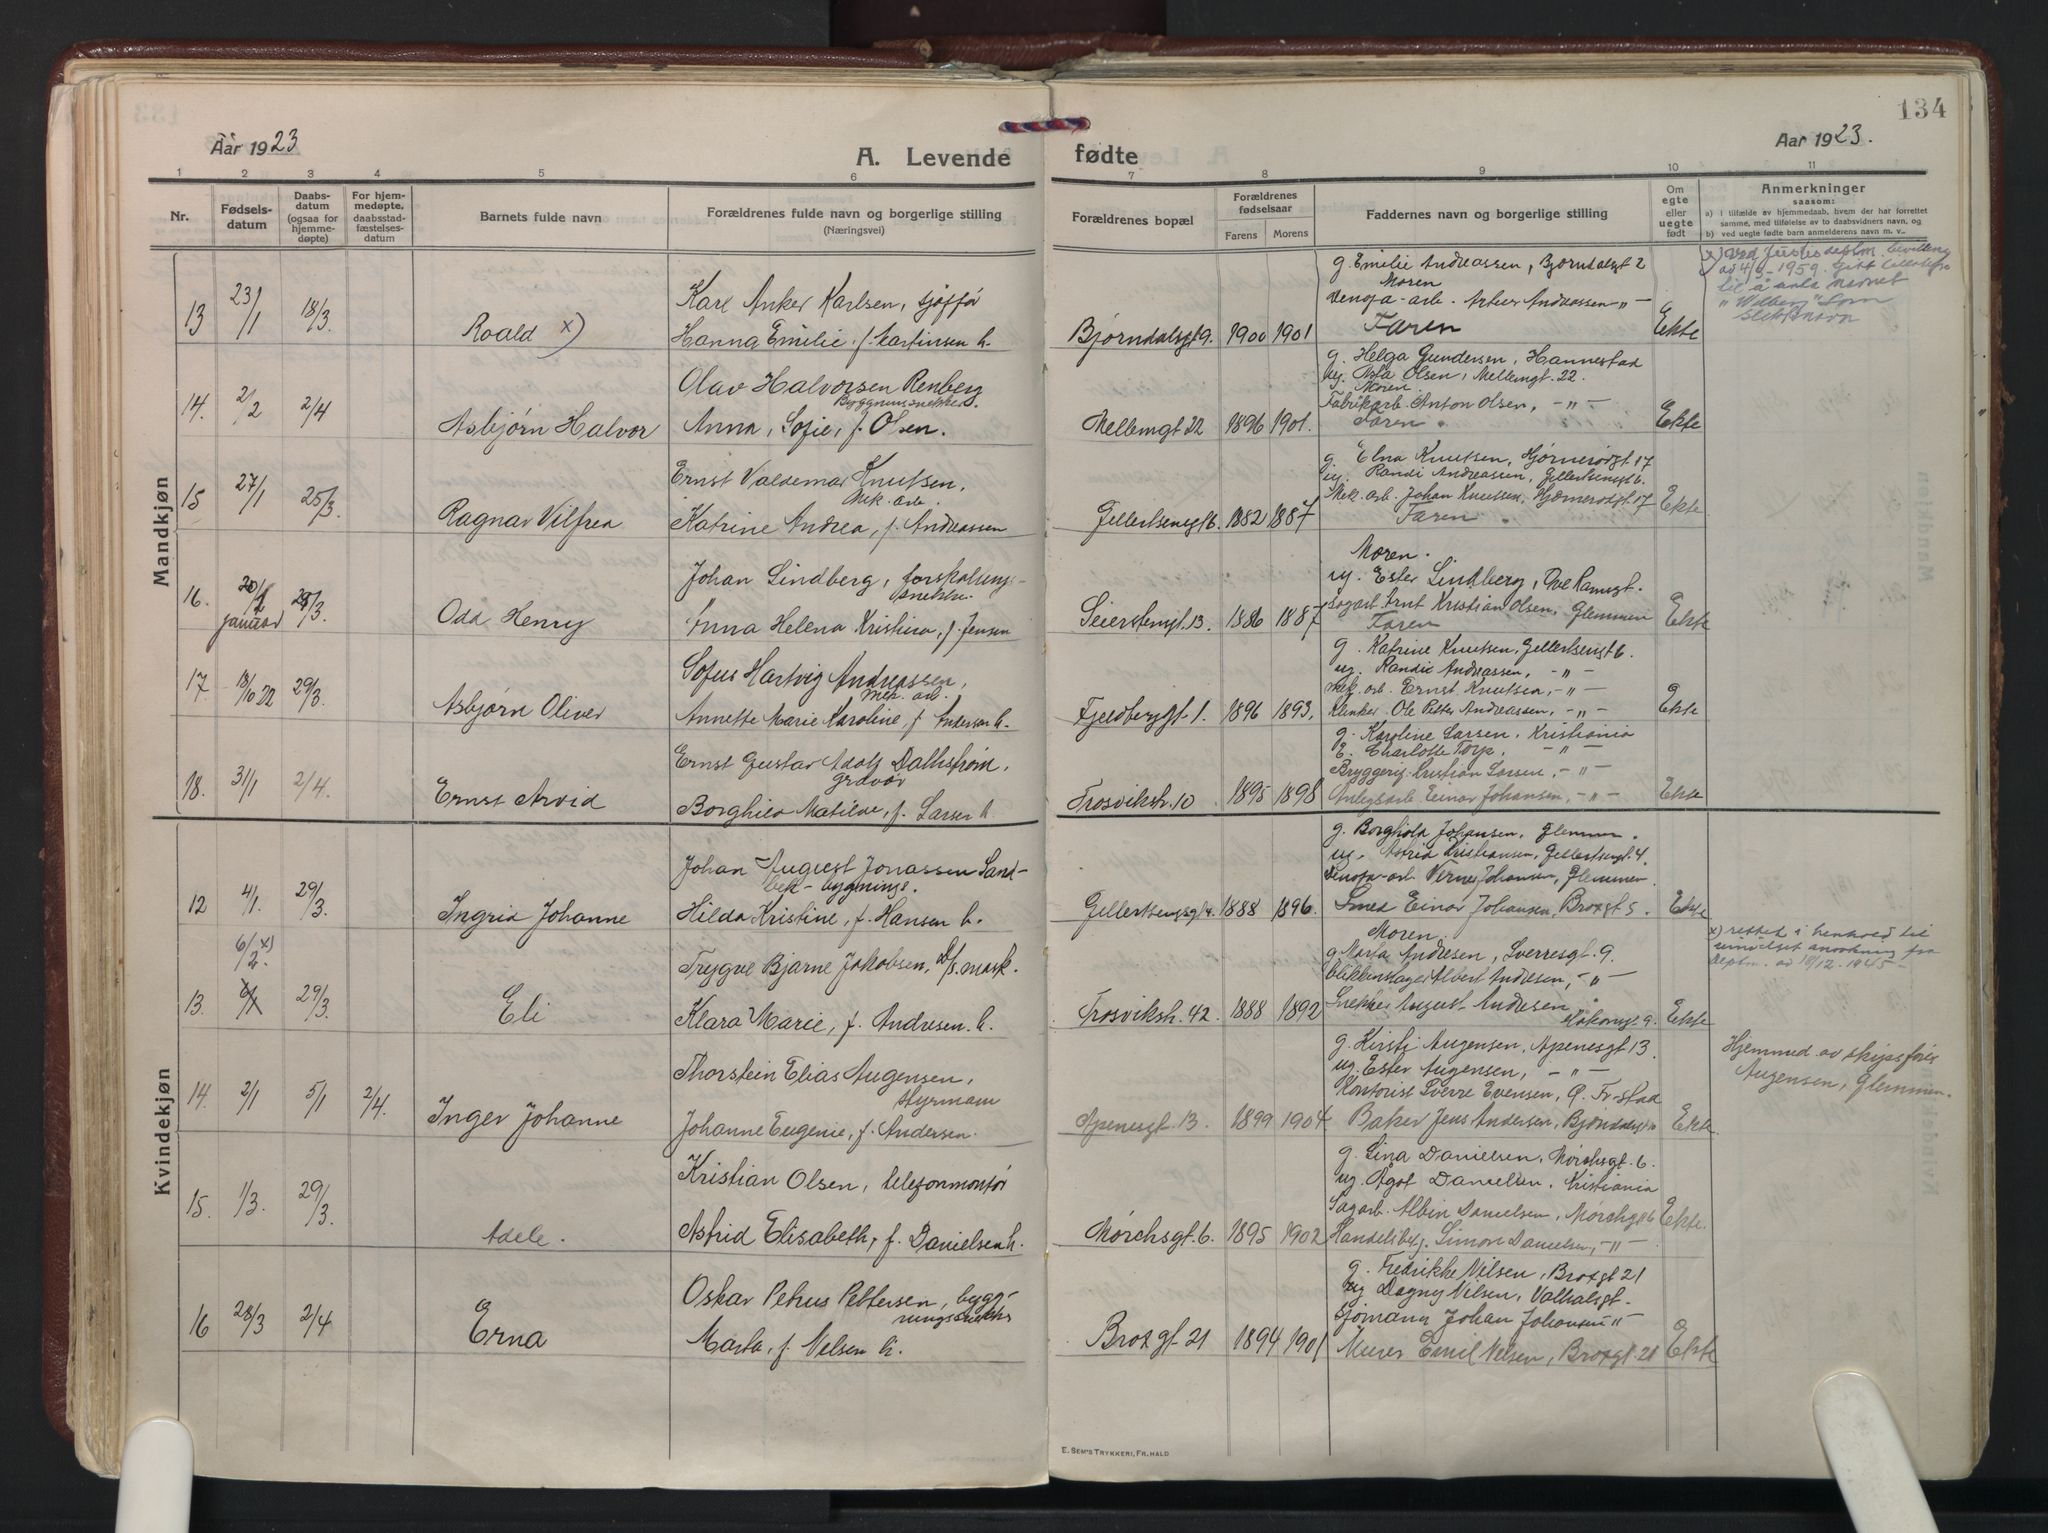 134
Aar 1923
A. Levende fødte
Aar 1923.
1 2 3 4 5 6 7 8 9 10 11
Nr.
Fødsels-
datum
Daabs-
datum
(ogsaa for
hjemme-
døpte)
For hjem-
medøpte,
daabsstad-
fæstelses-
datum
Barnets fulde navn
Forældrenes fulde navn og borgerlige stilling
(Næringsvei)
Forældrenes bopæl
Forældrenes
fødselsaar
Farens
Morens
Faddernes navn og borgerlige stilling
Om
egte
eller
uegte
født
Anmerkninger
saasom:
a) i tilfælde av hjemmedaab, hvem der har forrettet
samme, med tilføielse av to daabsvidners navn, og
b) ved uegte fødte barn anmelderens navn m. v.
Mandkjøn
13
23/1
18/3.
Roald x)
Karl Anker Karlsen, sjøffør
Hanna Emilie, f. Martinsen h.
Bjørndalsgt 9.
1900
1901
g. Emilie Andreassen, Bjørndalsgt 2
Moren
Denofa-arb. Andreassen -"-
Faren
Ekte
x) Ved Justisdeptm. bevilling
av 4/3-1959. gitt
til å anta navnet
"Wilberg" som
slektsnavn
14.
2/2
2/4
Asbjørn Halvor
Olav Halvorsen Renberg
Bygningssnekker.
Anna, Sofie, f. Olsen.
Mellemgt 22
1896
1901.
g. Helga Gundersen, Hannestad
ug. Asta Olsen, Mellemgt. 22.
Moren.
Fabrikarb. Anton Olsen, -"-
Faren
Ekte
15
27/1
25/3.
Ragnar Vilfred
Ernst Valdemar Knutsen,
Mek. arb.
Katrine Andrea, f. Andreassen
Gellertsensgt 6.
1882
1887
g. Elna Knutsen, Hjørnerødgt 17
ug. Randi Andreassen, Gellertsensgt 6.
Mek. arb. Johan Knutsen, Hjørnerødgt. 17
Faren
Ekte
16.
20/
januar
/3.
Odd Henry
Johan Lindberg, forskalings-
snekker
Anna Helena Kristina, f. Jensen
Seierstengt. 13.
1886
1887
Moren.
ug. Ester Lindberg, Ove Ramsgt.
Sagarb. Arnt Kristian Olsen, Glemmen
Faren
Ekte
17.
18/10 22
29/3.
Asbjørn Oliver
Sofus Hartvig Andreassen,
Mek. arb.
Annette Marie Karoline, f. Andersen h.
Fjeldberggt. 1.
1896
1893.
g. Katrine Knutsen, Gellertsensgt 6.
ug. Randi Andreassen, -"-
Mek. arb. Ernst Knutsen, -"-
Klinker. Ole Peter Andreassen, -"-
Ekte
18.
31/1
2/4.
Ernst Arvid
Ernst Gustav Adolf Dahlstrøm,
gravør
Borghild Matilde, f. Larsen h.
Trosvikstr. 10
1895
1898
g. Karoline Larsen, Kristiania
E. Charlotte Torp, -"-
Bryggeriarb. Kristian Larsen, -"-
Anlegsarb. Einar Johansen, -"-
Ekte
Kvindekjøn
12
4/1.
29/3.
Ingrid Johanne
Johan August Jonassen Sand-
bek - bygnings.
Hilda Kristine, f. Hansen h.
Gellertsensgt 4.
1888
1896.
g. Borghild Johansen, Glemmen.
ug. Astrid Kristiansen, Gellertsensgt. 4.
Denofa-arb. Verner Johansen, Glemmen.
Smed Einar Johansen, Brokgt 5.
Ekte
13.
6/2 x)
6/1
29/3.
Eli
Trygve Bjarne Jakobsen, D/s mask.
Klara Marie, f. Andresen. h.
Trosvikstr. 42.
1888
1892
Moren.
g. Marta Andresen, Sverresgt. 9.
Blikkenslager Albert Andresen, -"-
Snekker August Andresen
Håkonsgt. 9.
Ekte
x) rettet i henhold til
anordning fra
deptm. av 18/12. 1945 -
14.
2/1
5/1
2/4.
Inger Johanne
Thorstein Elias Augensen,
styrmann
Johanne Eugenie, f. Andersen.
Apenesgt. 13.
1899
1904
g. Kirsti Augensen, Apenesgt 13.
ug. Ester Augensen, -"-
Kontorist Sverre Evensen, Fr.stad
Baker Jens Andersen, Bjørndalsgt
Ekte.
Hjemmed. av skipsfører
Augensen, Glemmen.
15.
1/3.
29/3.
Adele.
Kristian Olsen, telefonmontør
Astrid Elisabeth, f. Danielsen h.
Mørchsgt. 6.
1895
1902
g. Lina Danielsen, Mørchsgt. 6.
ug. Agot Danielsen, Kristiania
Sagarb. Albin Danielsen, Mørchsgt 6
Handelsbetj. Simon Danielsen, -"-
Ekte.
16
28/3
2/4
Erna
Oskar Petrus Pettersen, bygg-
ningssnekker
Marta, f. Nilsen h.
Brokgt. 21
1894
1901
g. Fredrikke Nilsen, Brokgt 21
ug Dagny Nilsen, Valhalsgt.
Sjømann Johan Johansen -"-
Murer Emil Nilsen, Brokgt. 21
Ekte
E. SEM'S TRYKKERI, FR.HALD